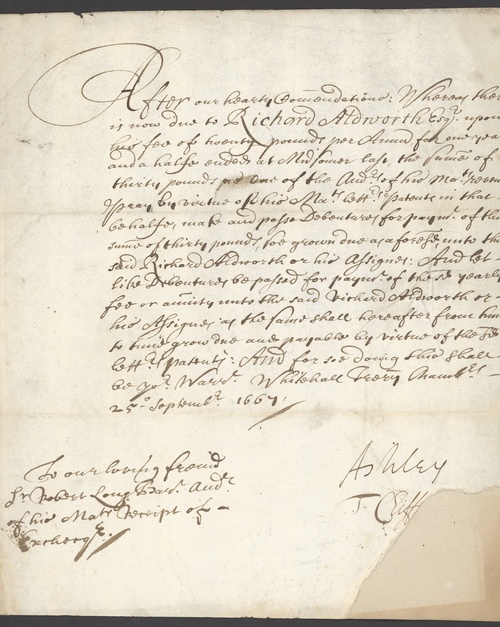 After our hearty Comendations: Whereas there
is now due to Richard Aldworth Esqr. upon
his fee of twenty pounds per Annū for one yeare
and a halfe ended at Midsomer last, the sume of
thirty pounds as one of the Audrs. of his Mats. revenue
I pray by virtue of his Mats. lettrs. Patents in that
behalfe, make and passe Debentures for paymt. of the
sume of thirty pounds, soe grown due as aforesd. unto the
said Richard Aldworth or his Assignes: And let
like Debentures be passed for paymt. of the sd. yearly
fee or annuity unto the said Richard Aldworth or
his Assignes as the same shall hereafter from time
to time grow due and payable by virtue of the sd
lettrs. patents: And for soe doing this shall
be yor. Warrt. Whitehall Treāry Chambers
25o Septembr. 1667.
Ashley
T. Cliff
To our loving freind
Sr. Robert Long Bart. Audr.
of his Mats Receipt of
Exchequr.